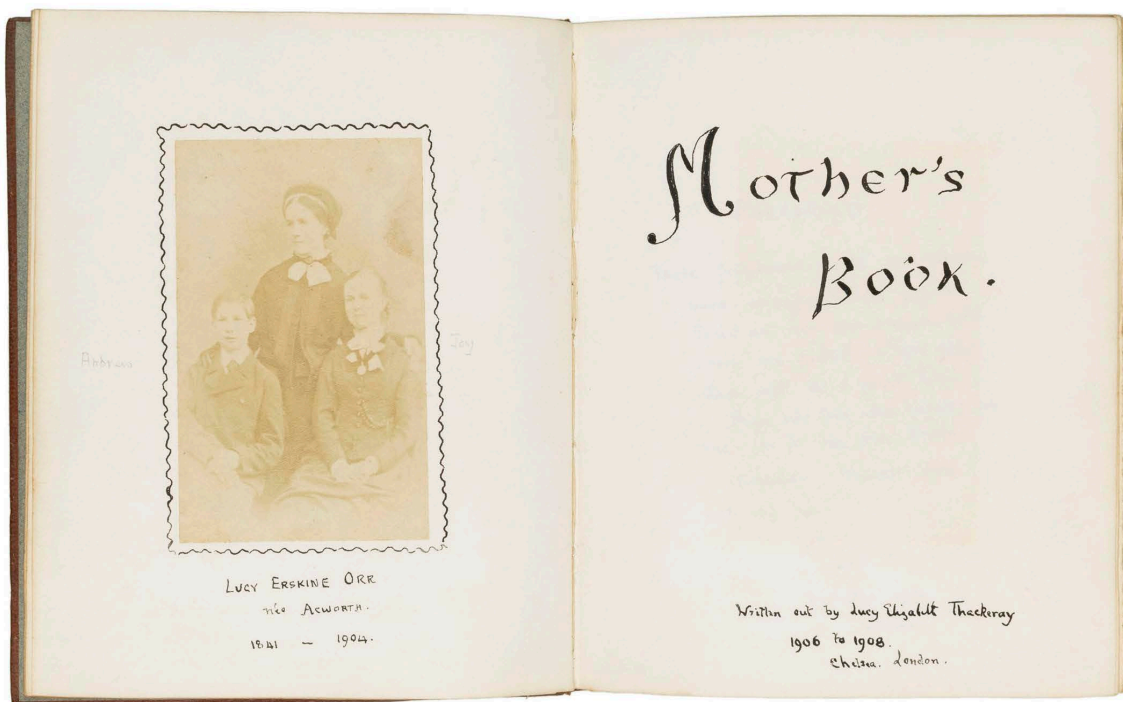 Andrew
Joy
LUCY ERSKINE ORR
née ACWORTH.
1841 — 1904.
Mother's
Book.
Written out by Lucy Elizabeth Thackeray
1906 to 1908.
Chelsea. London.